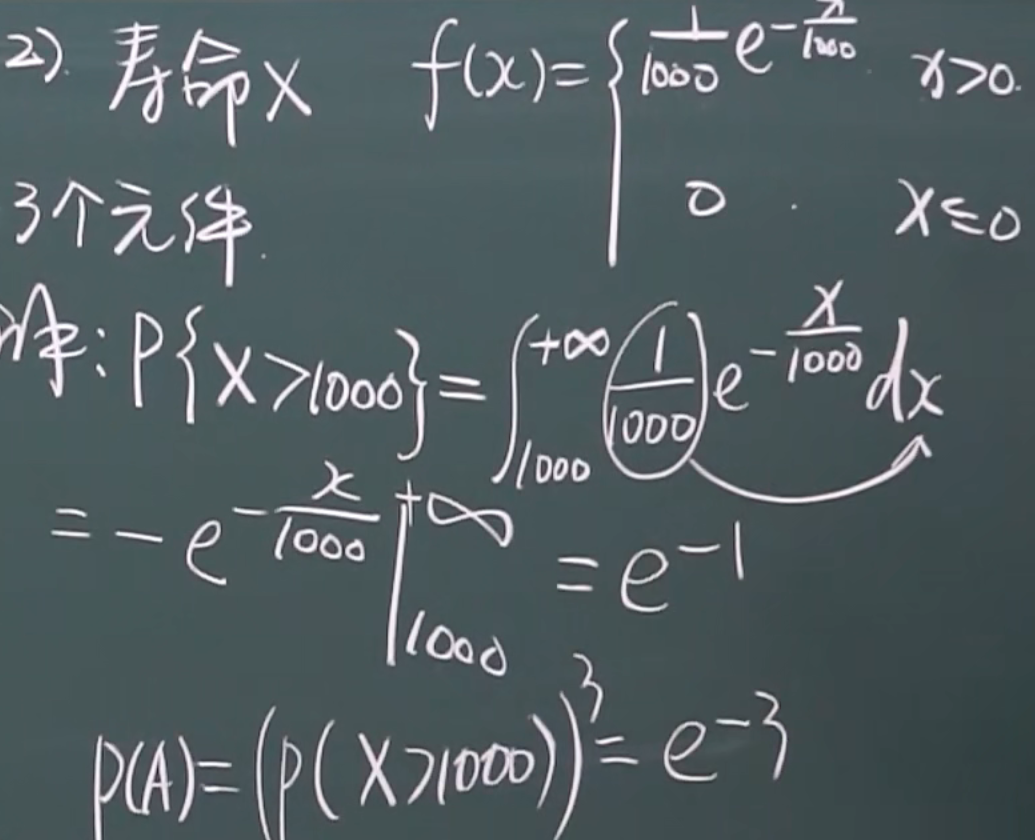 2). 寿命X f(x)={ 1/1000 e^{-x/1000} x>0.
0 . x≤0
3个元件.
解: P{X>1000}=∫_{1000}^{+∞} (1/1000) e^{-x/1000} dx
= -e^{-x/1000} |_{1000}^{+∞} = e^{-1}
P(A)=(P(X>1000))^3= e^{-3}